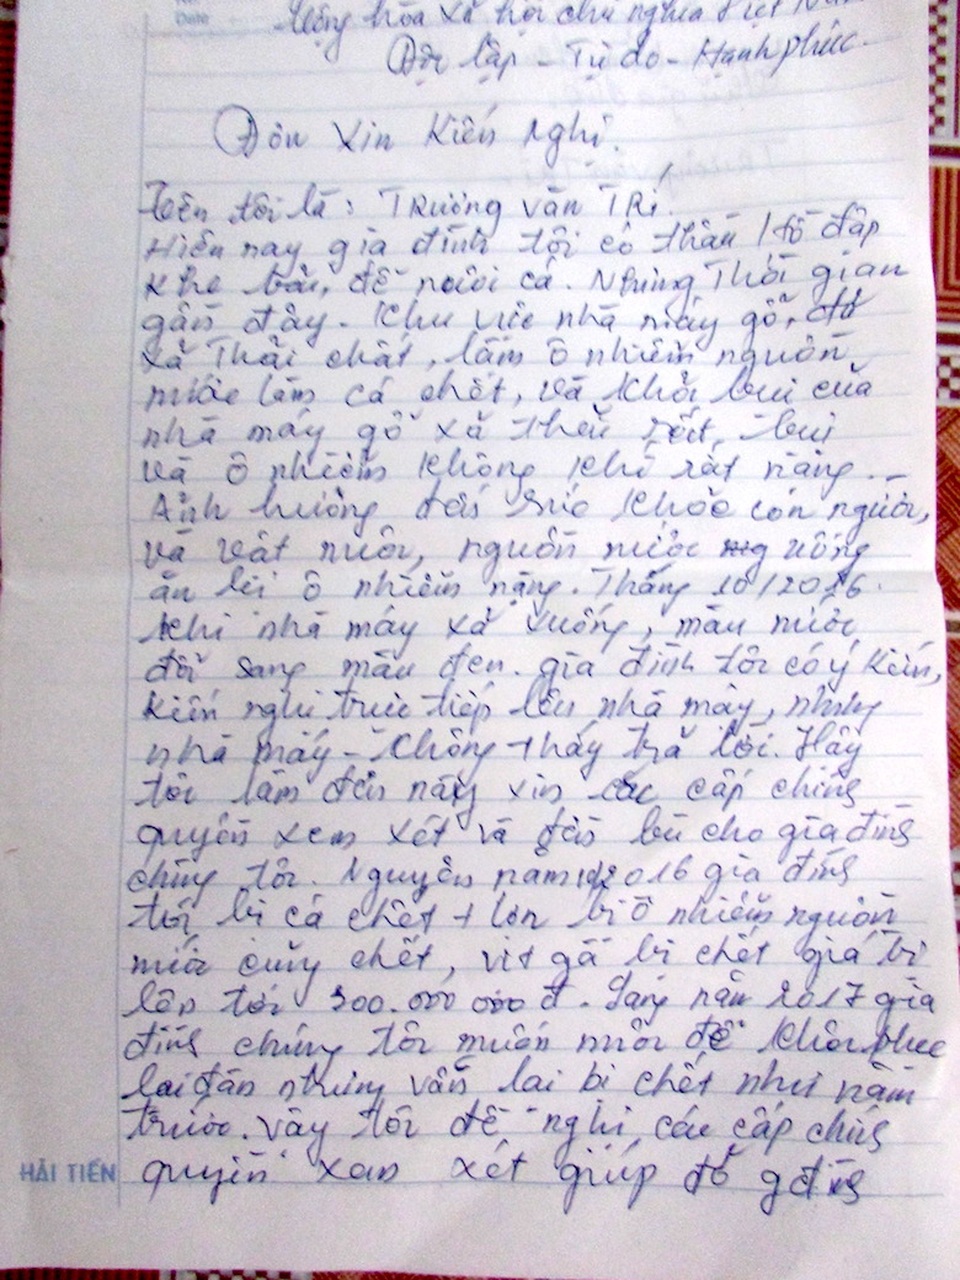 Date
Cộng hòa xã hội chủ nghĩa Việt Nam
Độc lập - Tự do - Hạnh phúc
Đơn Xin Kiến Nghị.
Tên tôi là: TRương Văn TRị.
Hiện nay gia đình tôi có thầu 1 hồ đập
Khe để nuôi cá. Nhưng Thời gian
gần đây. Khu vực nhà máy gỗ, đã
xả Thải chất, làm ô nhiễm nguồn
nước làm cá chết, và khói bụi của
nhà máy gỗ xả bụi
và ô nhiễm không khí rất nặng...
Ảnh hưởng đến sức khỏe con người,
và vật nuôi, nguồn nước uống
ăn bị ô nhiễm nặng. Tháng 10/2016.
khi nhà máy xả xuống, màu nước
đổi sang màu đen. gia đình tôi có ý kiến,
kiến nghị trực tiếp lên nhà máy, nhưng
nhà máy - Không thấy trả lời. Hãy
tôi làm đơn này xin các cấp chính
quyền xem xét và đền bù cho gia đình
chúng tôi. Nguyên năm 2016 gia đình
tôi bị cá chết + lợn bị ô nhiễm nguồn
nước cũng chết, vịt gà bị chết giá trị
lên tới 300.000 000 đ. Sang năm 2017 gia
đình chúng tôi muốn nuôi để khôi phục
lại đàn nhưng vẫn lại bị chết như năm
trước. vậy tôi đề nghị các cấp chính
quyền xem xét giúp đỡ g đình
HẢI TIẾN